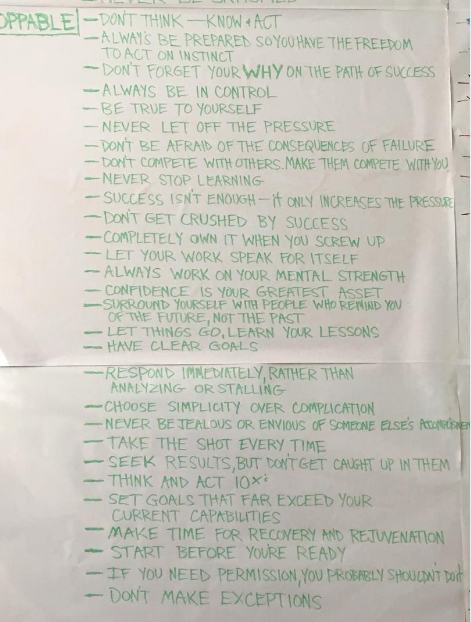 OPPABLE
— DON'T THINK — KNOW + ACT
— ALWAYS BE PREPARED SO YOU HAVE THE FREEDOM
TO ACT ON INSTINCT
— DON'T FORGET YOUR WHY ON THE PATH OF SUCCESS
— ALWAYS BE IN CONTROL
— BE TRUE TO YOURSELF
— NEVER LET OFF THE PRESSURE
— DON'T BE AFRAID OF THE CONSEQUENCES OF FAILURE
— DON'T COMPETE WITH OTHERS. MAKE THEM COMPETE WITH YOU
— NEVER STOP LEARNING
— SUCCESS ISN'T ENOUGH — IT ONLY INCREASES THE PRESSURE
— DON'T GET CRUSHED BY SUCCESS
— COMPLETELY OWN IT WHEN YOU SCREW UP
— LET YOUR WORK SPEAK FOR ITSELF
— ALWAYS WORK ON YOUR MENTAL STRENGTH
— CONFIDENCE IS YOUR GREATEST ASSET
— SURROUND YOURSELF WITH PEOPLE WHO REMIND YOU
OF THE FUTURE, NOT THE PAST
— LET THINGS GO, LEARN YOUR LESSONS
— HAVE CLEAR GOALS
— RESPOND IMMEDIATELY, RATHER THAN
ANALYZING OR STALLING
— CHOOSE SIMPLICITY OVER COMPLICATION
— NEVER BE JEALOUS OR ENVIOUS OF SOMEONE ELSE'S
— TAKE THE SHOT EVERY TIME
— SEEK RESULTS, BUT DON'T GET CAUGHT UP IN THEM
— THINK AND ACT 10X
— SET GOALS THAT FAR EXCEED YOUR
CURRENT CAPABILITIES
— MAKE TIME FOR RECOVERY AND REJUVENATION
— START BEFORE YOU'RE READY
— IF YOU NEED PERMISSION, YOU PROBABLY SHOULDN'T DO IT
— DON'T MAKE EXCEPTIONS